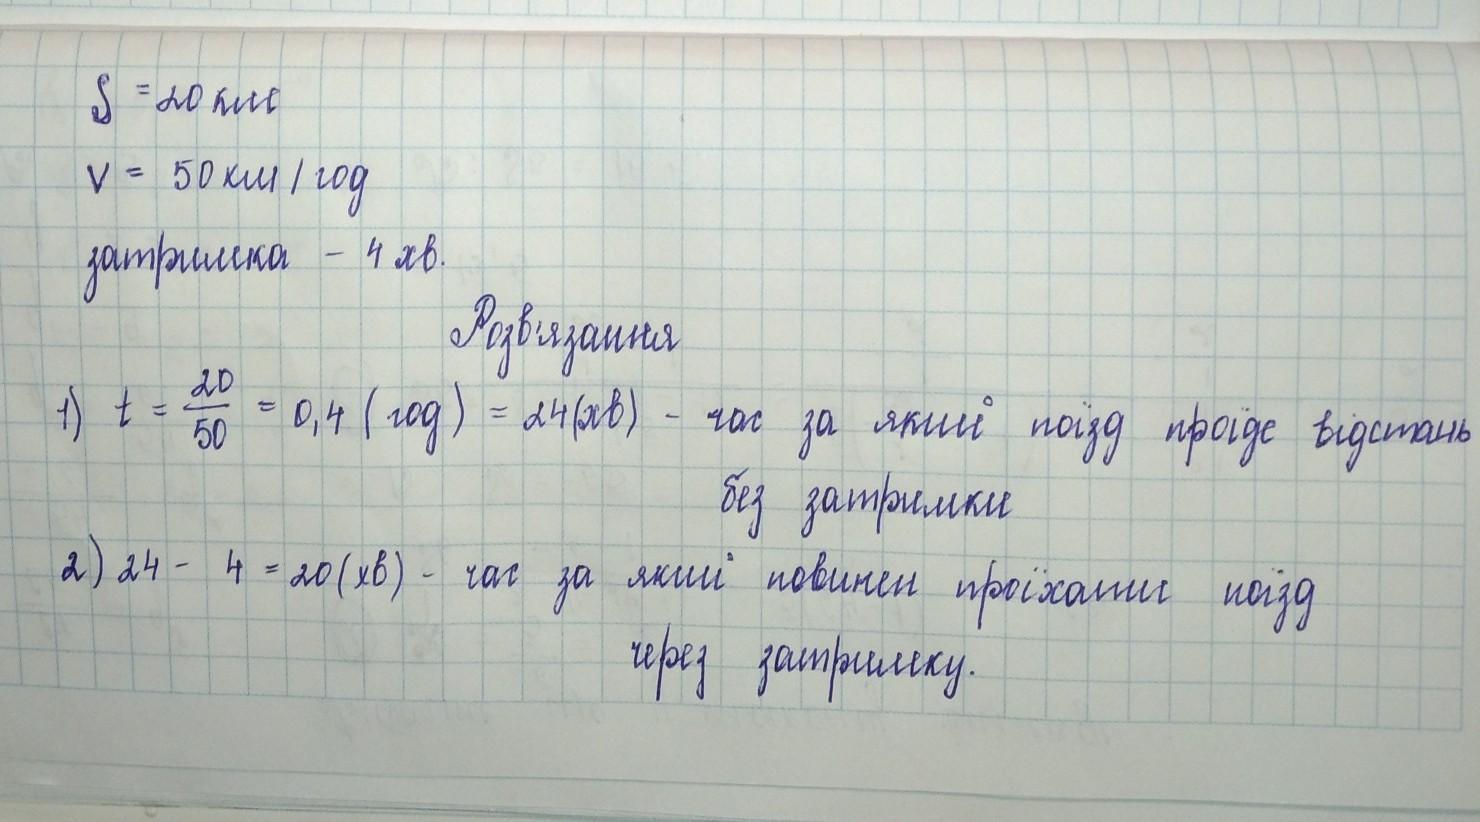 S = 20 км
v = 50 км/год
затримка - 4 хв.
Розв'язання
1) t = 20/50 = 0,4 (год) = 24(хв) - час за який поїзд проїде відстань
без затримки
2) 24 - 4 = 20(хв) - час за який повинен проїхати поїзд
через затримку.